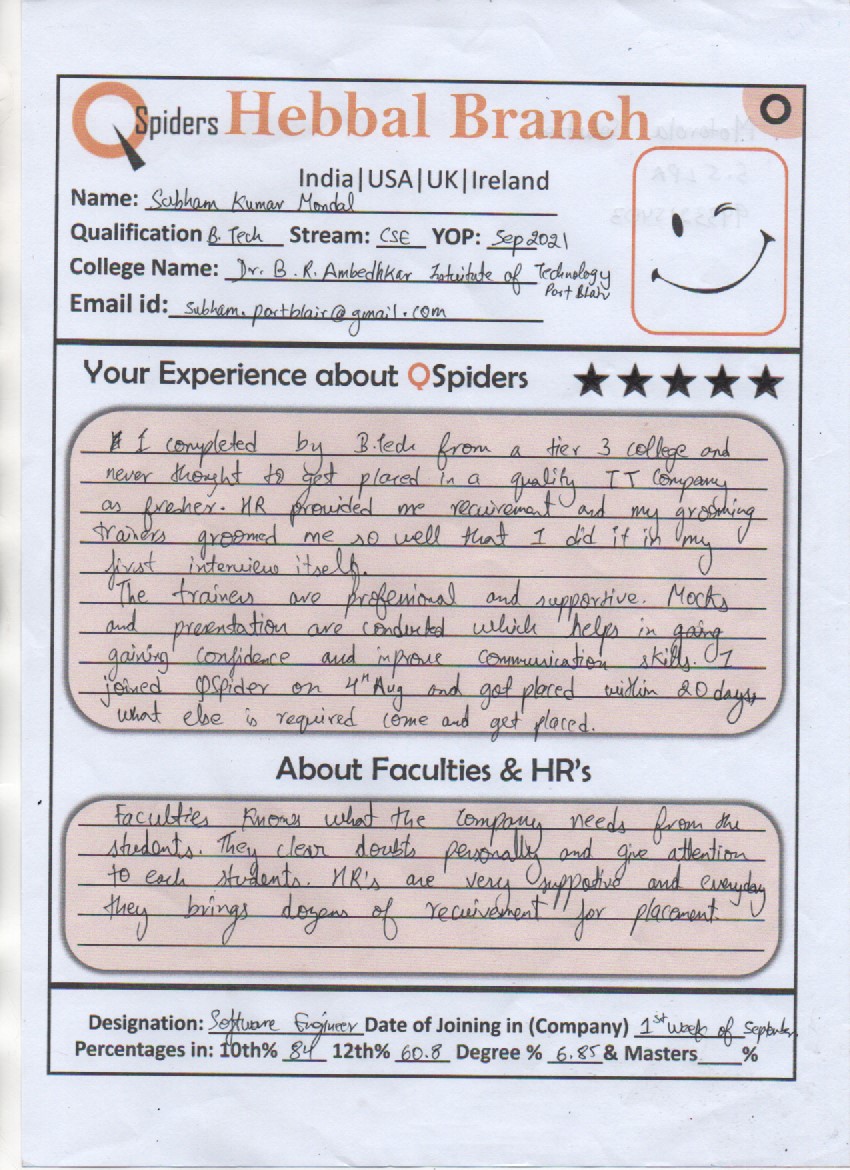 QSpiders Hebbal Branch
India|USA|UK|Ireland
Name: Subham Kumar Mondal
Qualification B. Tech Stream: CSE YOP: Sep 2021
College Name: Dr. B. R. Ambedhkar Intuitate of Technology
Port Blair
Email id: subham.portblair@gmail.com
Your Experience about QSpiders
I completed by B.Tech from a tier 3 college and
never thought to get placed in a quality IT Company
as fresher. HR provided me recuirement and my grooming
trainers groomed me so well that I did it in my
first interview itself.
The trainers are professional and supportive. Mocks
and presentation are conducted which helps in
gaining confidence and inprove communication skills. I
joined QSpider on 4th Aug and got placed within 20 days,
what else is required come and get placed.
About Faculties & HR's
Faculties Knows what the company needs from the
students. They clear doubts personally and give attention
to each students. HR's are very supportive and everyday
they brings dozens of recuirement for placement.
Designation: Software Engineer Date of Joining in (Company) 1st week of September
Percentages in: 10th% 84 12th% 60.8 Degree % 6.85 & Masters____%